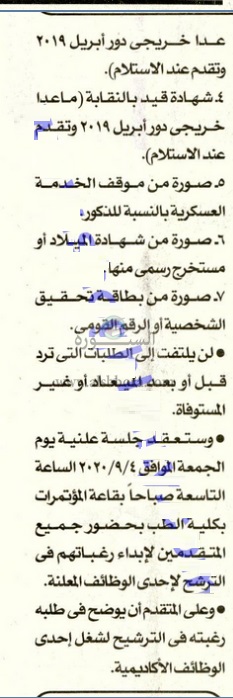 عدا خريجى دور أبريل ٢٠١٩
وتقدم عند الاستلام).
٤ـ شهادة قيد بالنقابة (ماعدا
خريجى دور أبريل ٢٠١٩ وتقدم
عند الاستلام).
٥ـ صورة من موقف الخدمة
العسكرية بالنسبة للذكور.
٦ـ صورة من شهادة الميلاد أو
مستخرج رسمى منها.
٧ـ صورة من بطاقة تحقيق
الشخصية أو الرقم القومى.
● لن يلتفت إلى الطلبات التى ترد
قبل أو بعد الميعاد أو غير
المستوفاة.
● وستعقد جلسة علنية يوم
الجمعة الموافق ٢٠٢٠/٩/٤ الساعة
التاسعة صباحاً بقاعة المؤتمرات
بكلية الطب بحضور جميع
المتقدمين لإبداء رغباتهم فى
الترشح لإحدى الوظائف المعلنة.
● وعلى المتقدم أن يوضح فى طلبه
رغبته فى الترشيح لشغل إحدى
الوظائف الأكاديمية.